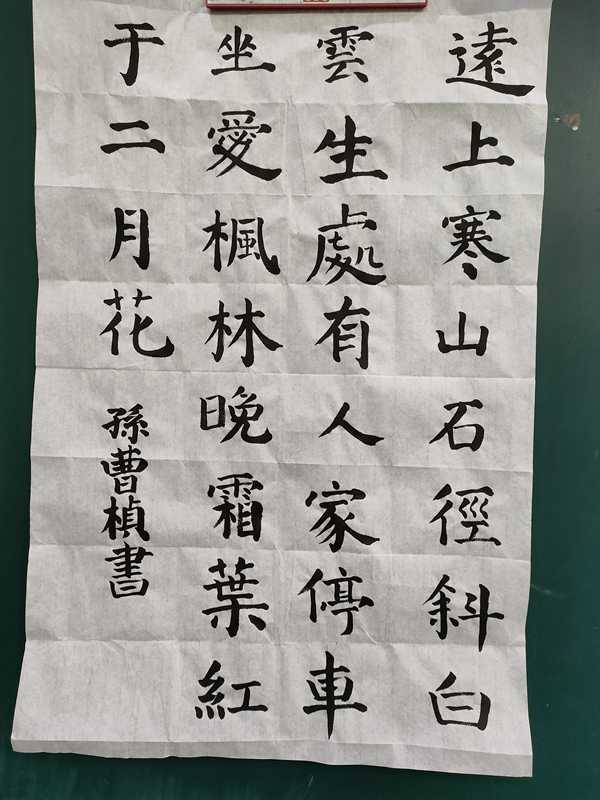 遠上寒山石徑斜白
雲生處有人家停車
坐愛楓林晚霜葉紅
于二月花
孫曹楨書